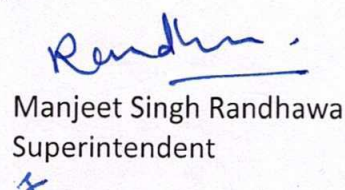 Manjeet Singh Randhawa
Superintendent